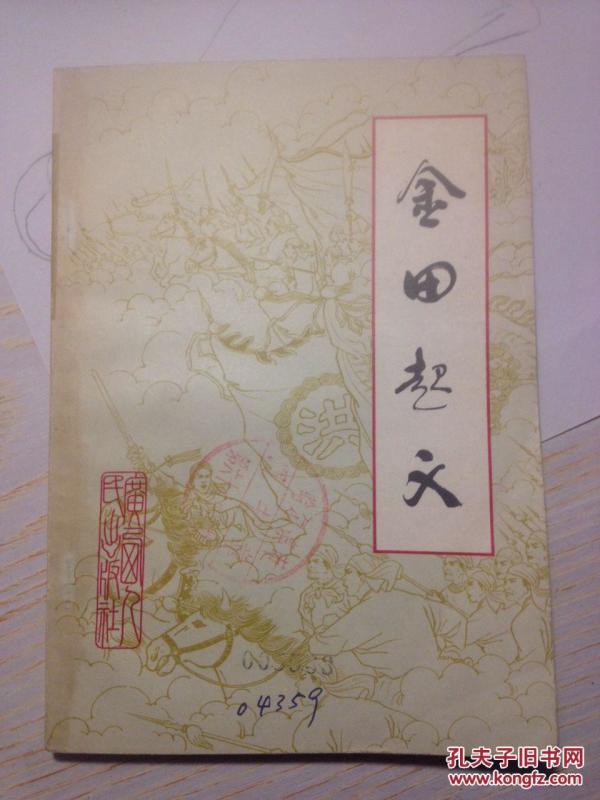 金田起义
洪
廣西人
民出版社
04359
孔夫子旧书网
www.kongfz.com